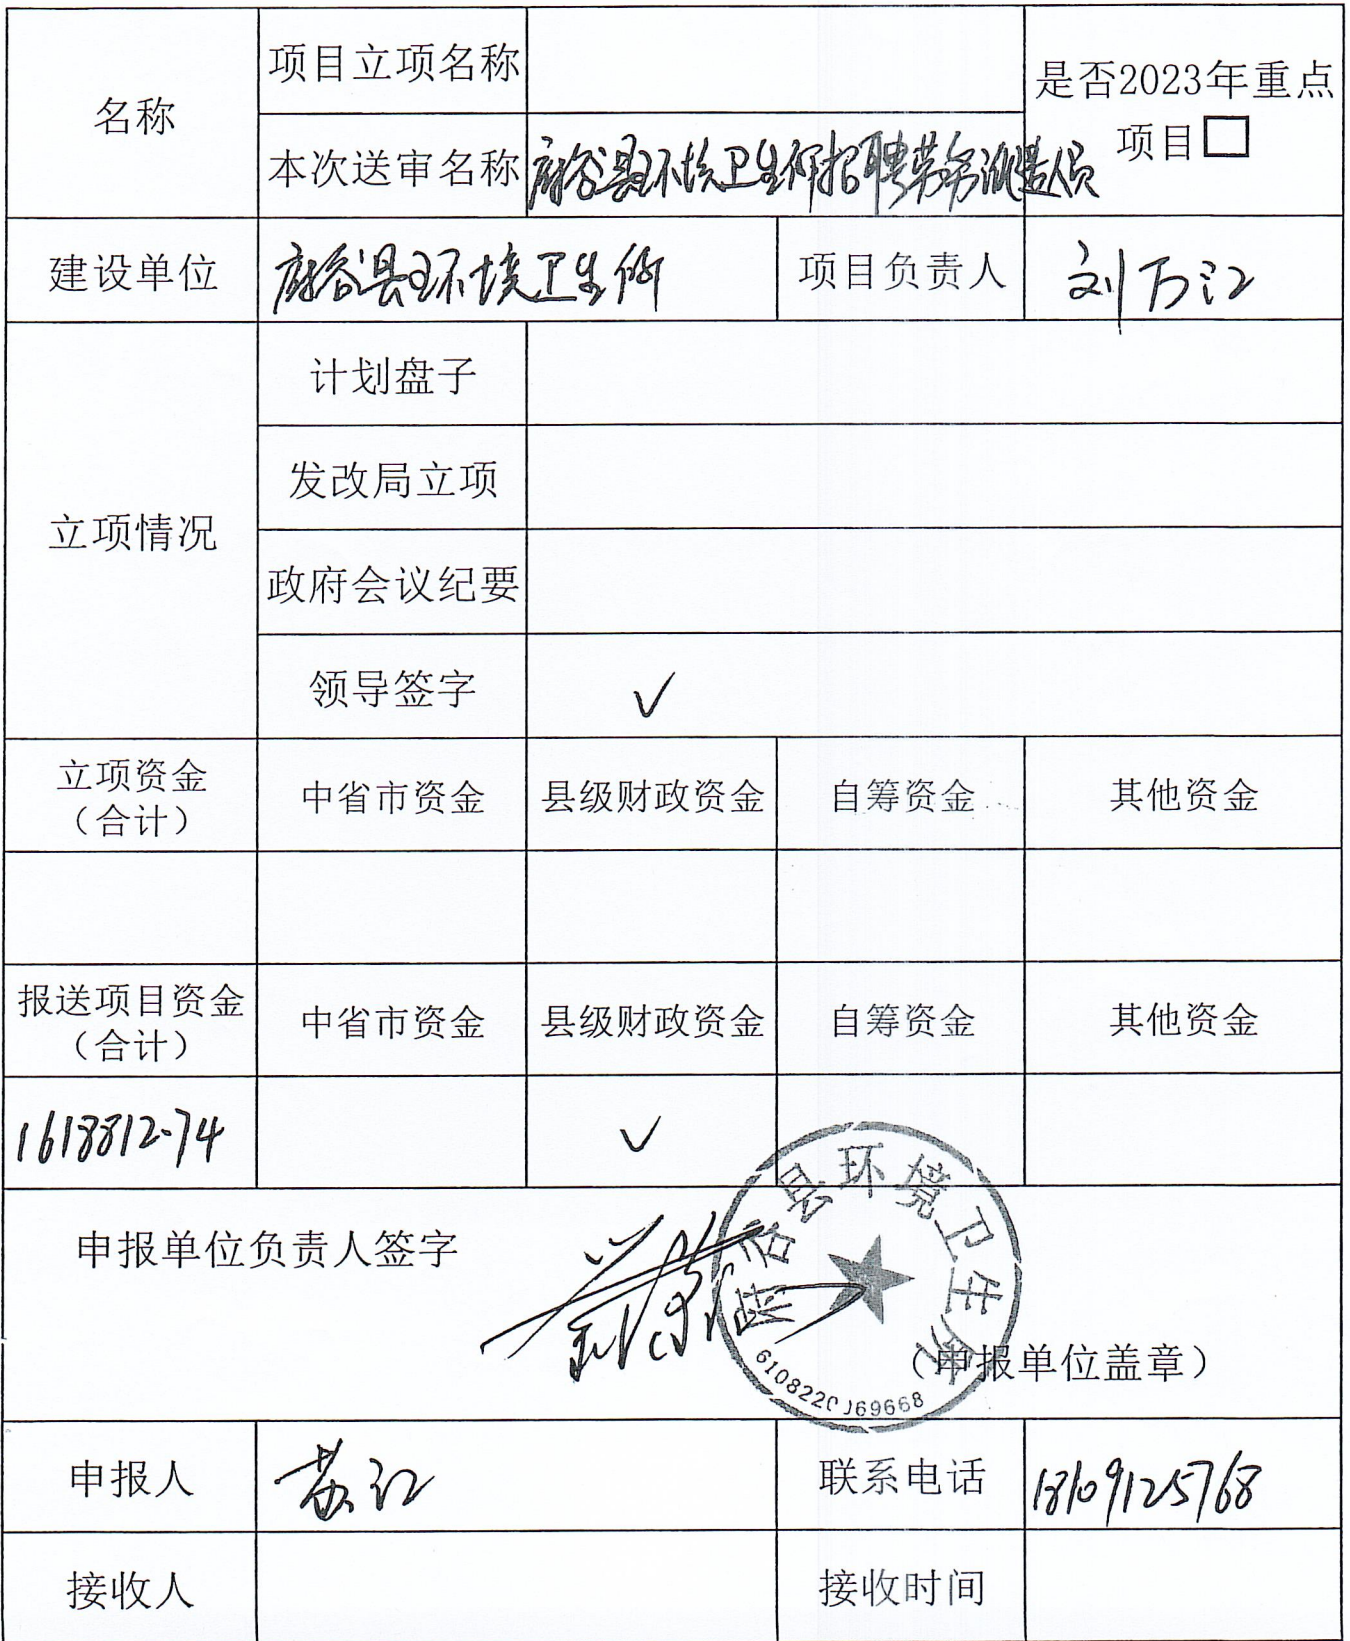 名称
项目立项名称
是否2023年重点
项目□
本次送审名称
府谷县环境卫生所招聘劳务派遣人员
建设单位
府谷县环境卫生所
项目负责人
刘万江
立项情况
计划盘子
发改局立项
政府会议纪要
领导签字
✓
立项资金
（合计）
中省市资金
县级财政资金
自筹资金
其他资金
报送项目资金
（合计）
中省市资金
县级财政资金
自筹资金
其他资金
1618812.74
✓
申报单位负责人签字
府谷县环境卫生所
（申报单位盖章）
申报人
苏江
联系电话
18109125768
接收人
接收时间